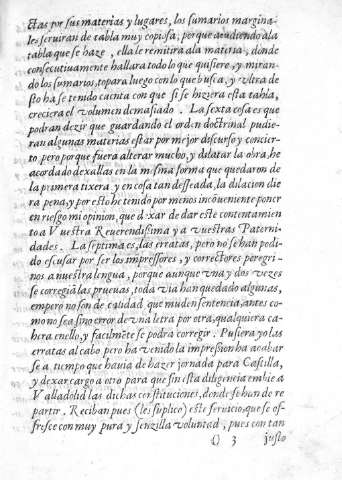 ctas por sus materias y lugares, los sumarios margina-
les seruiran de tabla muy copiosa, porque acudiendo ala
tabla que se haze, ella le remitira ala materia, donde
consecutiuamente hallara todo lo que quisiere, y miran-
do los sumarios, topara luego con lo que busca, y vltra de
sto ha se tenido cuenta con que si se hiziera esta tabla,
creciera el volumen demasiado. La sexta cosa es que
podran dezir que guardando el orden doctrinal pudie-
ran algunas materias estar por mejor discurso y concier-
to, pero por que fuera alterar mucho, y dilatar la obra, he
acordado dexallas en la misma forma que quedaron de
la primera tixera y en cosa tan desseada, la dilacion die
ra pena, y por esto he tenido por menos incōueniente poner
en riesgo mi opinion, que dexar de dar este contentamien
to a Vuestra Reuerendissima y a vuestras Paterni-
dades. La septima es, las erratas, pero no se han podi-
do escusar por ser los impressores, y correctores peregri-
nos a nuestra lengua, porque aunque vna y dos vezes
se corregiā las prueuas, toda via han quedado algunas,
empero no son de calidad que muden sentencia, antes co-
mo no sea sino error de vna letra por otra, qualquiera ca-
hera enello, y facilmēte se podra corregir. Pusiera yo las
erratas al cabo pero ha venido la impression ha acabar
se a tiempo que hauia de hazer jornada para Castilla,
y dexar cargo a otro para que sin esta diligencia embie a
Valladolid las dichas constituciones, donde se han de re
partir. Reciban pues (les suplico) este seruicio, que se of-
fresce con muy pura y senzilla voluntad, pues con tan
() 3 justo